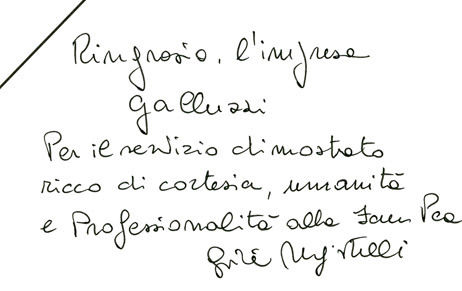 Ringrazio l'impresa
Galluzzi
Per il servizio dimostrato
ricco di cortesia, umanità
e Professionalità alla